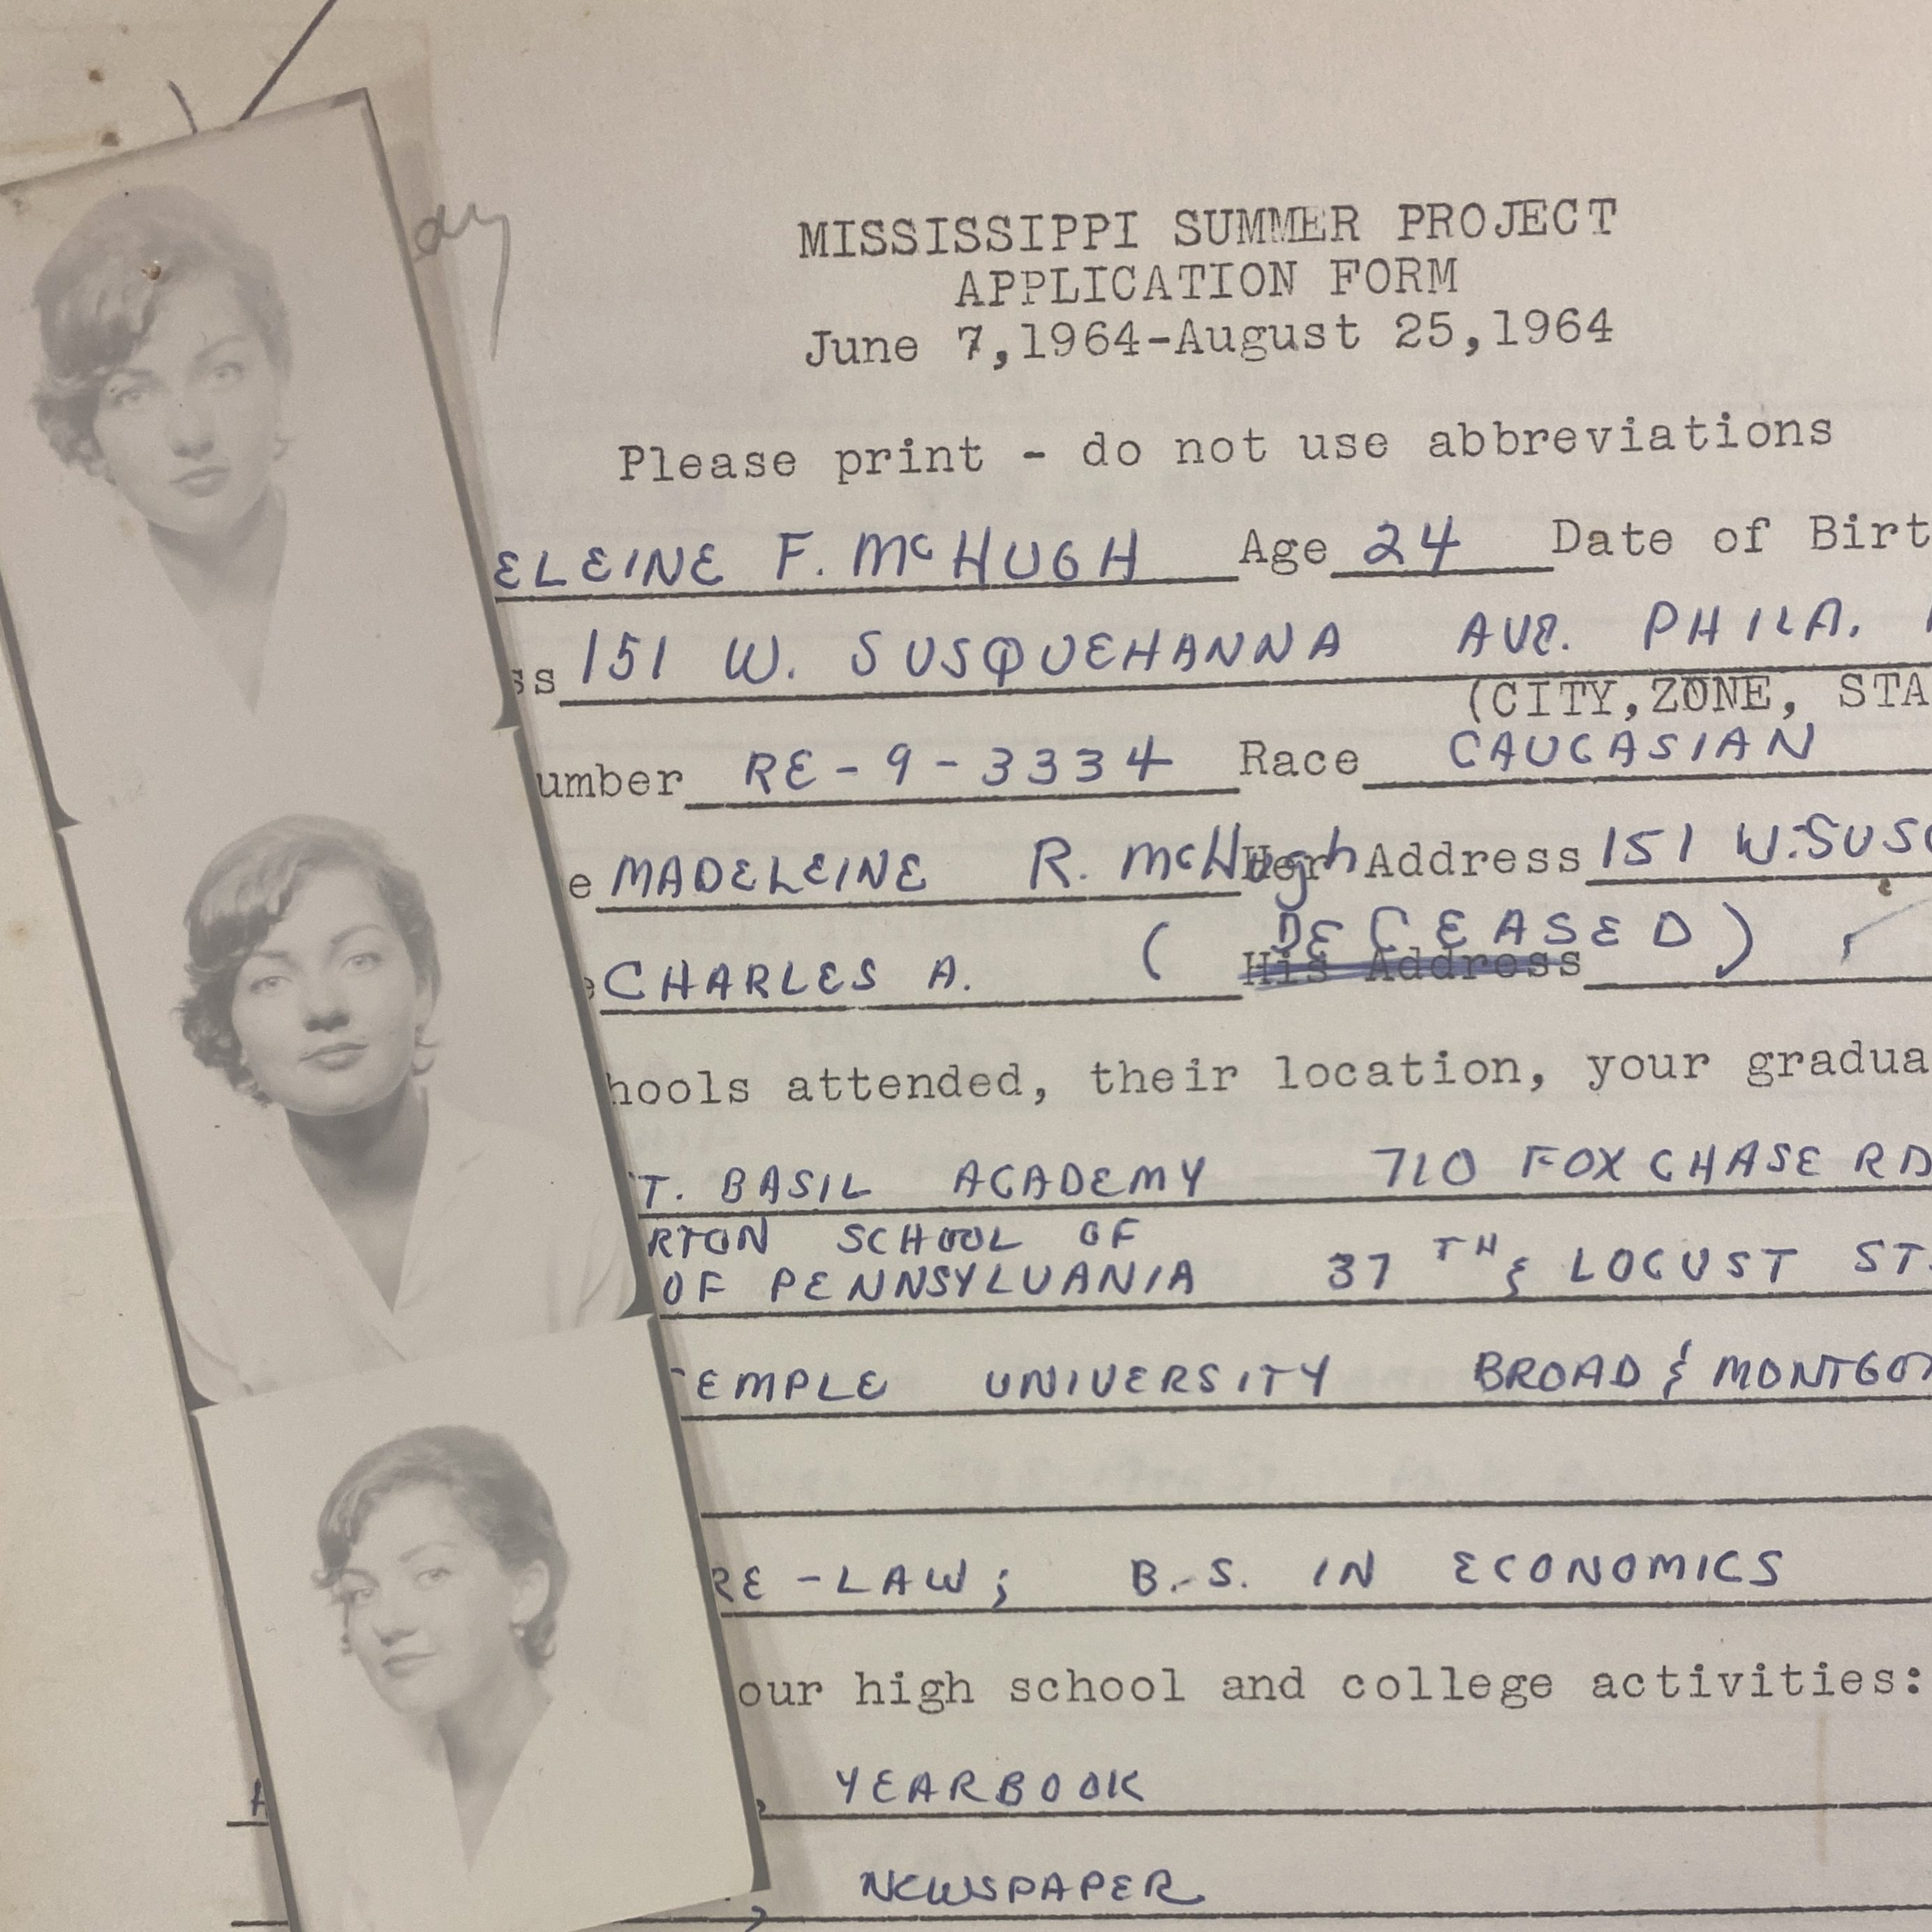 ay
MISSISSIPPI SUMMER PROJECT
APPLICATION FORM
June 7,1964-August 25,1964
Please print - do not use abbreviations
ELEINE F. McHUGH Age 24 Date of Birt
ss 151 W. SUSQUEHANNA AVE. PHILA.
(CITY,ZONE, STA
umber RE-9-3334 Race CAUCASIAN
e MADELEINE R. McHugh Her Address 151 W. SUSQ
e CHARLES A. (DECEASED) His Address
hools attended, their location, your gradua
T. BASIL ACADEMY 710 FOX CHASE RD
RTON SCHOOL OF
OF PENNSYLVANIA 37TH & LOCUST ST.
TEMPLE UNIVERSITY BROAD & MONTGOM
RE-LAW; B.S. IN ECONOMICS
our high school and college activities:
A , YEARBOOK
, NEWSPAPER